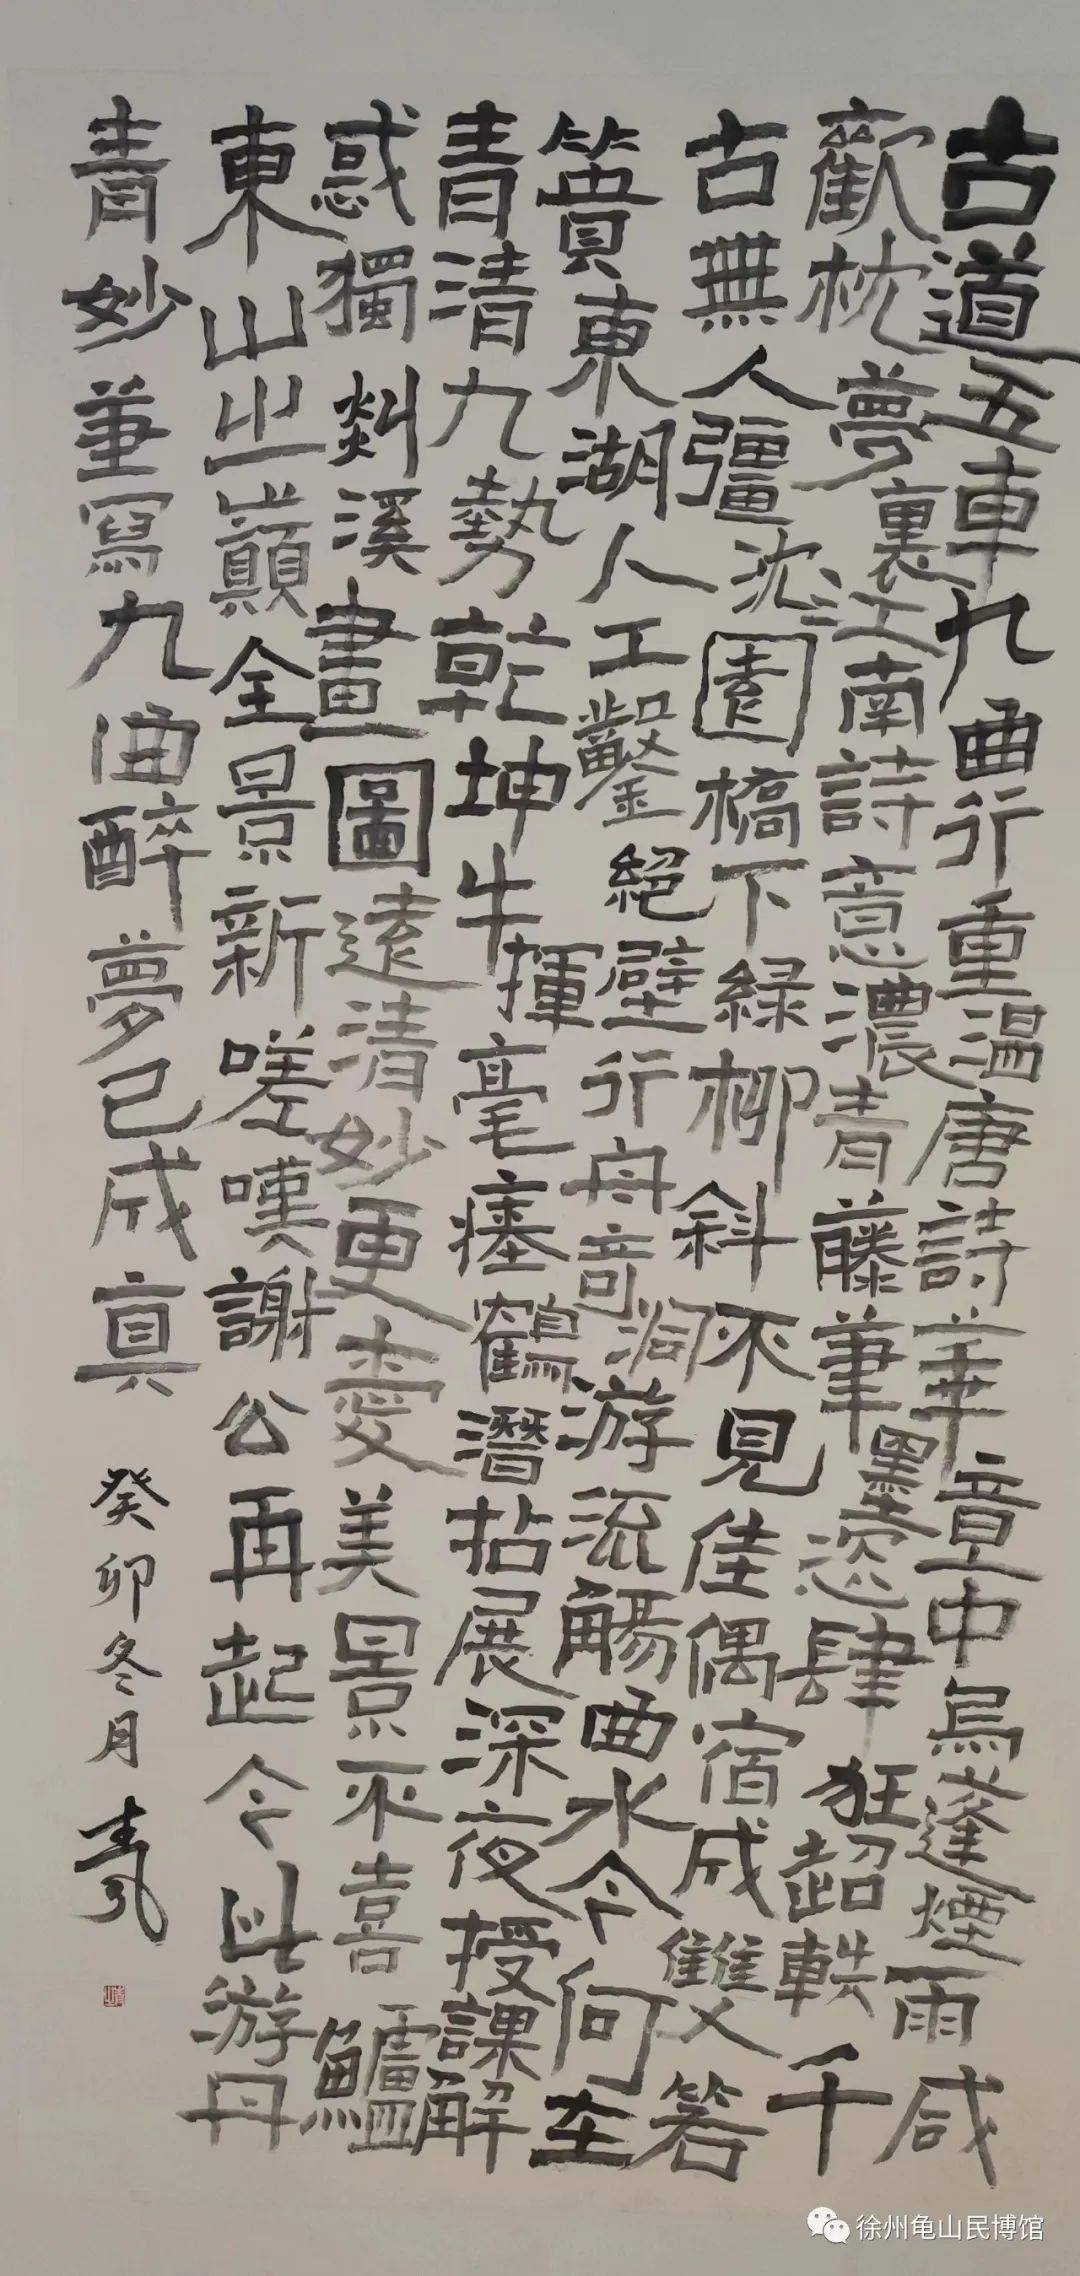 古道五車九曲行重溫唐詩華章中烏蓬煙雨咸
歡枕夢裏江南詩意濃青藤筆墨恣肆狂超軼千
古無人彊沈園橋下綠柳斜不見佳偶宿成雙箬
簣東湖人工鑿絕壁行舟奇洞游流觴曲水今何在
青清九勢乾坤牛揮毫瘗鶴潛拈展深夜授課解
惑獨剡溪畫圖遠清妙更愛美景不喜鱸
東山之巔全景新嗟嘆謝公再起今此游丹
青妙筆寫九曲醉夢已成真
癸卯冬月
徐州龟山民博馆